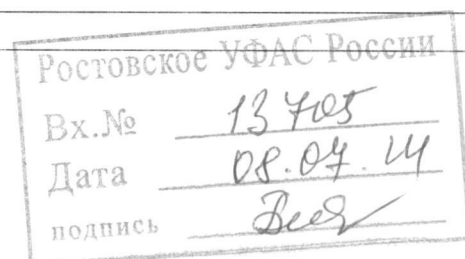 Ростовское УФАС России
Вх.№ 13705
Дата 08.07.14
подпись